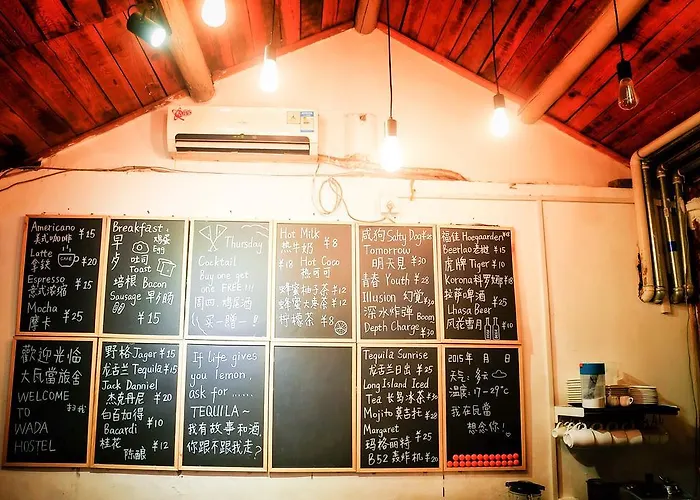 Americano
美式咖啡 ¥15
Latte
拿铁 CAFE ¥20
Espresso
意式浓缩 ¥15
Mocha
摩卡 ¥25
Breakfast.
早 鸡蛋 Egg
吐司 Toast
培根 Bacon
Sausage 早夕肠
¥15
Thursday
Cocktail
Buy one get
one FREE
周四.鸡尾酒
买一赠一!
Hot Milk
热牛奶 ¥8
¥18 Hot Coco
热可可
蜂蜜柚子茶 ¥12
蜂蜜大枣茶 ¥12
柠檬茶 ¥8
咸狗 Salty Dog ¥25
Tomorrow
明天見 ¥30
青春 Youth ¥28
Illusion 幻覚 ¥30
深水炸弹 Boom
Depth Charge ¥30
福佳 Hoegaarden ¥25
Beerlao 老挝 ¥15
虎牌 Tiger ¥10
Korona 科罗娜 ¥18
拉萨啤酒 ¥25
Lhasa Beer
风花雪月 ¥10
歡迎光臨
大瓦當旅舍
WELCOME
TO
WADA
HOSTEL
野格 Jager ¥15
龙舌兰 Tequila ¥15
Jack Danniel
杰克丹尼 ¥20
白百加得
Bacardi ¥10
桂花 ¥12
陈酿
If Life gives
you lemon,
ask for ......
TEQUILA~
我有故事和酒,
你跟不跟我走?
Tequila Sunrise
龙舌兰日出 ¥25
Long Island Iced
Tea 长岛冰茶 ¥30
Mojito 莫吉托 ¥28
Margaret
玛格丽特 ¥25
B52 轰炸机 ¥20
2015年 月 日
天气: 多云
温度: 17-29℃
我在瓦當
想念你!